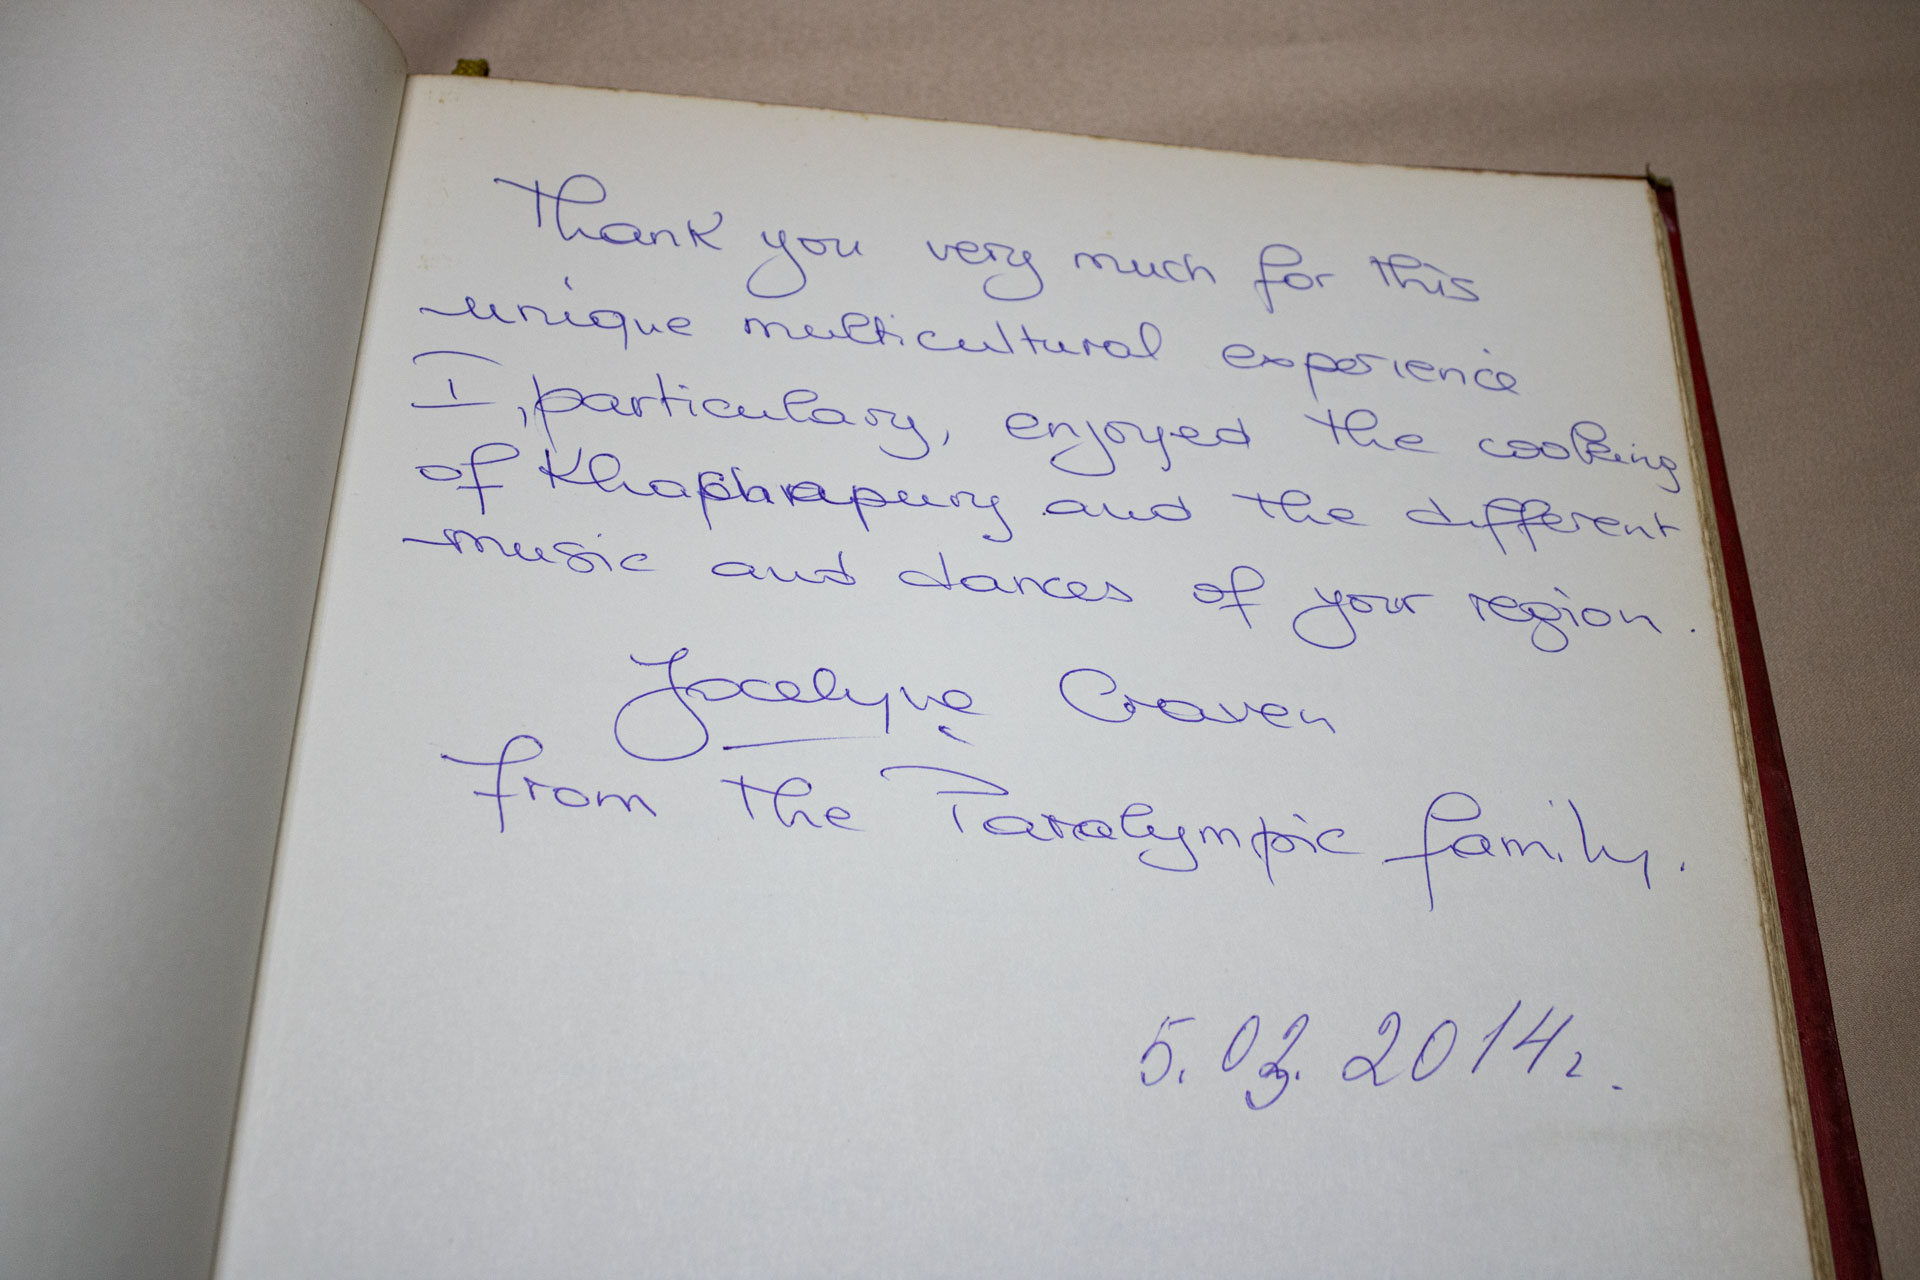 Thank you very much for this
unique multicultural experience
I, particulary, enjoyed the cooking
of and the different
music and dances of your region.
Jocelyne Craven
from the Paralympic family.
5.03.2014г.